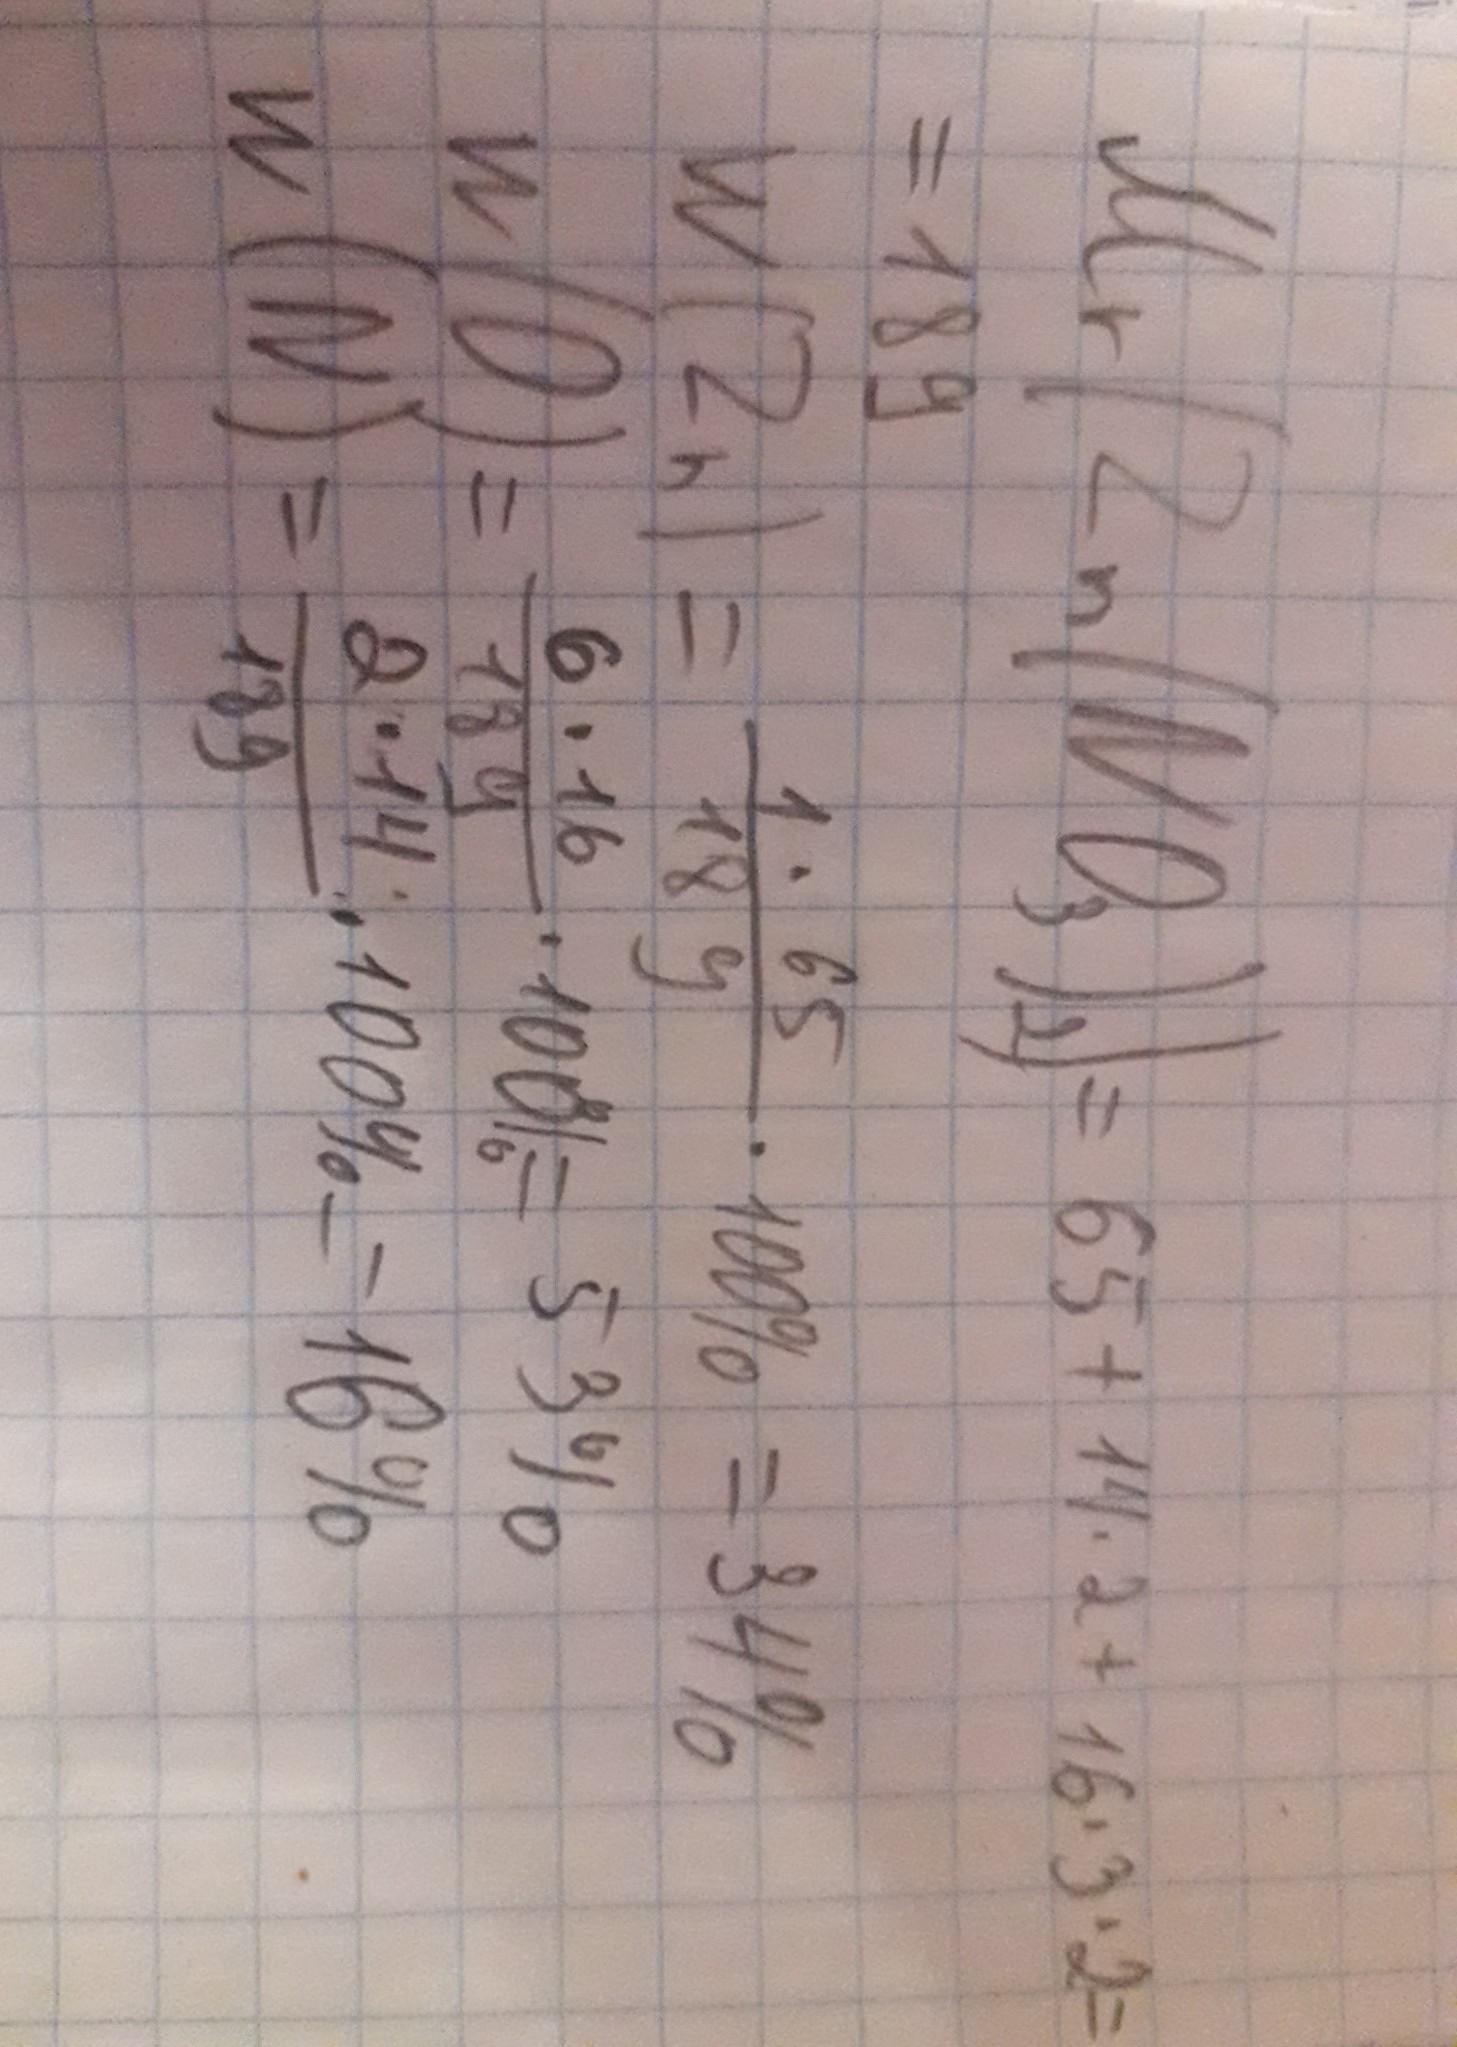 Mr(Zn(NO₃)₂) = 65 + 14 · 2 + 16 · 3 · 2 =
= 189
W(Zn) = 1 · 65 / 189 · 100% = 34%
W(O) = 6 · 16 / 189 · 100% = 53%
W(N) = 2 · 14 / 189 · 100% = 16%